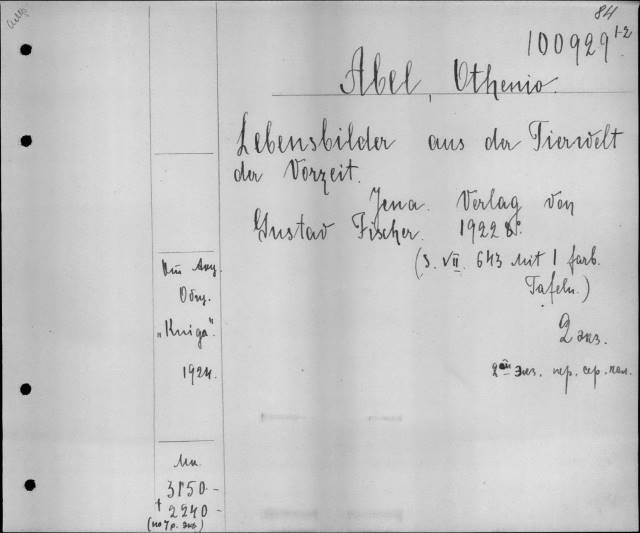 84
100929 1-2
Abel, Othenio.
Lebensbilder aus der Tierwelt
der Vorzeit.
Jena. Verlag von
Gustav Fischer. 1922 8°.
(S. VII. 643 mit 1 farb.
Tafeln.)
2 экз.
2ой экз. пер. сер. кол.
Акц.
Общ.
"Kniga".
1924.
3150-
+ 2240-
(по 7 р. экз.)